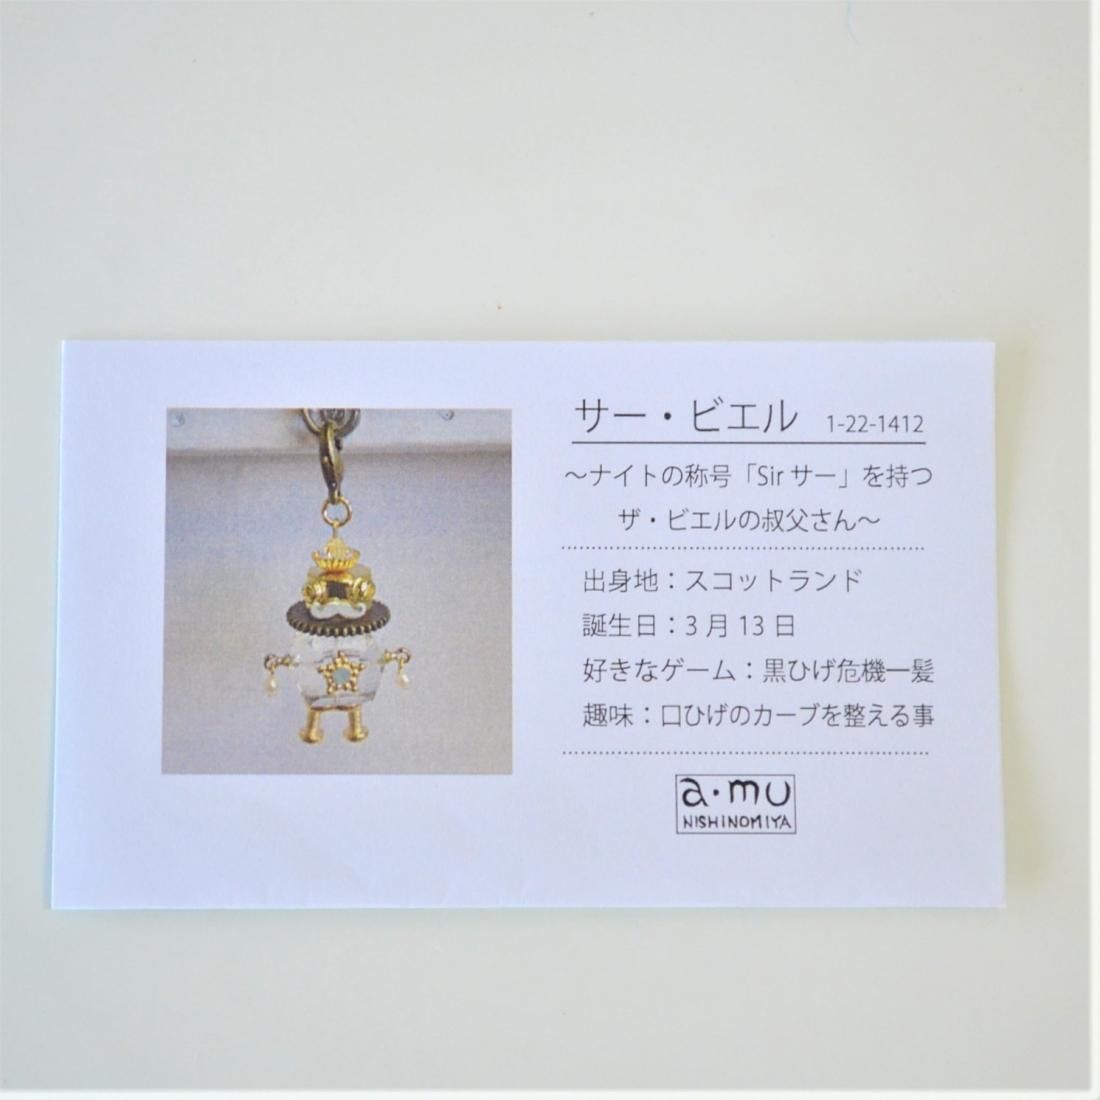 サー・ビエル 1-22-1412
～ナイトの称号「Sir サー」を持つ
ザ・ビエルの叔父さん～
出身地：スコットランド
誕生日：3 月 13 日
好きなゲーム：黒ひげ危機一髪
趣味：口ひげのカーブを整える事
a・mu
NISHINOMIYA